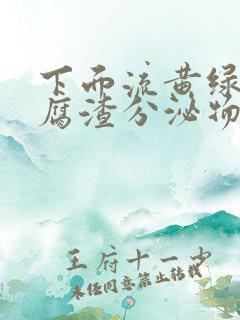 下而流黄绿
腐渣分泌物
王府十一少
未经同意禁止转载